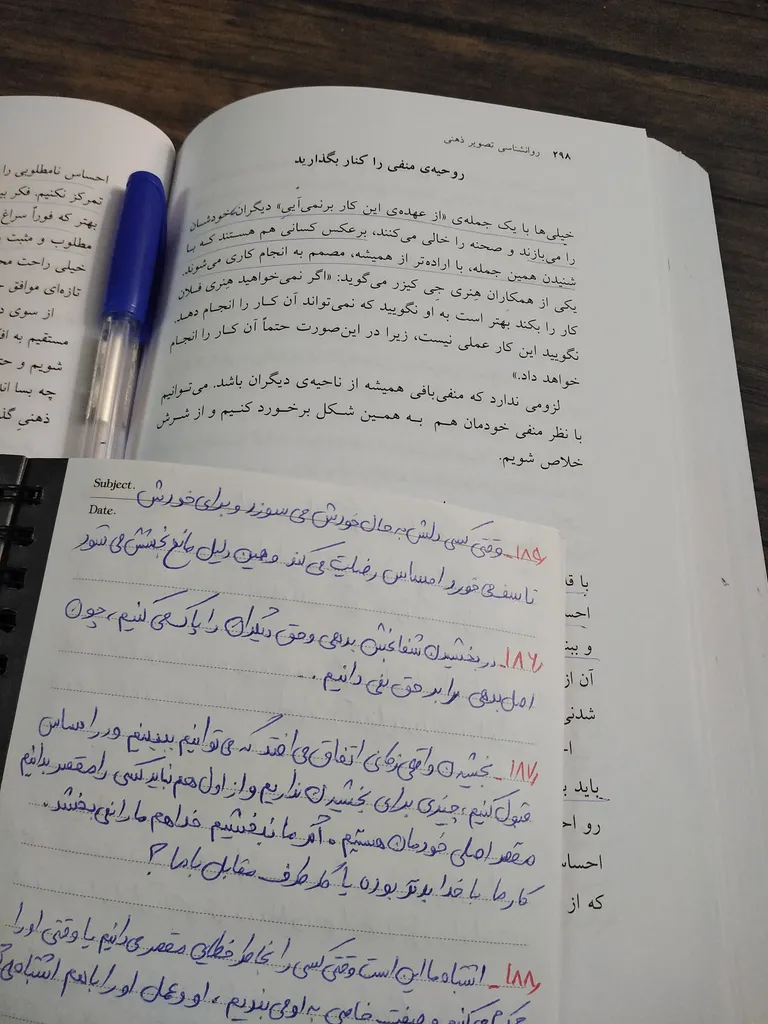 ۲۹۸ روانشناسی تصویر ذهنی
روحیه‌ی منفی را کنار بگذارید
خیلی‌ها با یک جمله‌ی «از عهده‌ی این کار برنمی‌آیی» دیگران، خودشان
را می‌بازند و صحنه را خالی می‌کنند، برعکس کسانی هم هستند که با
شنیدن همین جمله، با اراده‌تر از همیشه، مصمم به انجام کاری می‌شوند.
یکی از همکاران هِنری جِی کیزر می‌گوید: «اگر نمی‌خواهید هِنری فلان
کار را بکند بهتر است به او نگویید که نمی‌تواند آن کار را انجام دهد.
نگویید این کار عملی نیست، زیرا در این‌صورت حتماً آن کار را انجام
خواهد داد.»
لزومی ندارد که منفی‌بافی همیشه از ناحیه‌ی دیگران باشد. می‌توانیم
با نظر منفی خودمان هم به همین شکل برخورد کنیم و از شرش
خلاص شویم.
احساس نامطلوبی را
تمرکز نکنیم. فکر
بهتر که فوراً سراغ
مطلوب و مثبت
خیلی راحت
تازه‌ای موافق
از سوی
مستقیم به
شویم و
چه بسا
ذهنی
Subject.
Date.
۱۸۵ـ وقتی کسی دلش به حال خودش می سوزد و برای خودش
تاسف می خورد احساس رضایت می کند و همین دلیل مانع بخشش می شود
۱۸۶ـ در بخشیدن شفابخش بدهی و حق دیگران را پاک می کنیم، چون
اصل بدهی را بر حق نمی دانیم.
۱۸۷ـ بخشیدن واقعی زمانی اتفاق می افتد که می توانیم ببینیم و در احساس
قبول کنیم، چیزی برای بخشیدن نداریم و از اول هم نباید کسی را مقصر بدانیم
مقصر اصلی خودمان هستیم. اگر ما نبخشیم خدا هم ما را نمی بخشد.
کار ما با خدا بدتر بوده یا کار طرف مقابل با ما؟
۱۸۸ـ اشتباه ما این است وقتی کسی را بخاطر خطایی مقصر می دانیم یا وقتی او را
می کنیم و صفت خاصی به او می بندیم، او و عمل او را باهم اشتباه
با
و
آن از
شدنی
باید
رو
که از